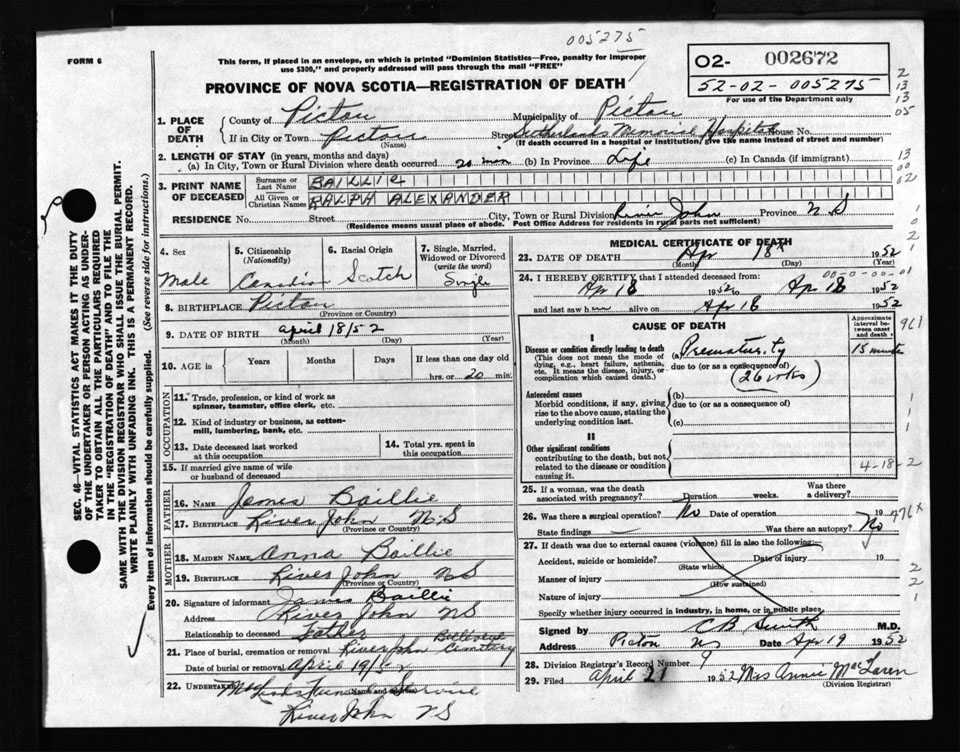 005275
FORM 6
This form, if placed in an envelope, on which is printed "Dominion Statistics—Free, penalty for improper
use $300," and properly addressed will pass through the mail "FREE"
O2- 002672
52-02-005275
For use of the Department only
PROVINCE OF NOVA SCOTIA—REGISTRATION OF DEATH
1. PLACE OF DEATH
County of Pictou Municipality of Pictou
If in City or Town Pictou Street Sutherland's Memorial Hospital House No.
(Name) (If death occurred in a hospital or institution, give the name instead of street and number)
2. LENGTH OF STAY (in years, months and days)
(a) In City, Town or Rural Division where death occurred 20 min (b) In Province Life (c) In Canada (if immigrant)
3. PRINT NAME OF DECEASED
Surname or Last Name BAILLIE
All Given or Christian Names RALPH ALEXANDER
RESIDENCE No. Street City, Town or Rural Division River John Province N.S
(Residence means usual place of abode. Post Office Address for residents in rural parts not sufficient)
4. Sex
Male
5. Citizenship
(Nationality)
Canadian
6. Racial Origin
Scotch
7. Single, Married,
Widowed or Divorced
(write the word)
Single
8. BIRTHPLACE Pictou
(Province or Country)
9. DATE OF BIRTH April 18/52
(Month) (Day) (Year)
10. AGE in
Years Months Days If less than one day old
hrs. or 20 min.
OCCUPATION
11. Trade, profession, or kind of work as
spinner, teamster, office clerk, etc.
12. Kind of industry or business, as cotton-
mill, lumbering, bank, etc.
13. Date deceased last worked
at this occupation
14. Total yrs. spent in
this occupation
15. If married give name of wife
or husband of deceased
FATHER
16. NAME James Baillie
17. BIRTHPLACE River John N.S
(Province or Country)
MOTHER
18. MAIDEN NAME Anna Baillie
19. BIRTHPLACE River John NS
(Province or Country)
20. Signature of informant James Baillie
Address River John NS
Relationship to deceased Father
21. Place of burial, cremation or removal River John Cemetery
Date of burial or removal April 19/52
22. UNDERTAKER Service
River John NS
MEDICAL CERTIFICATE OF DEATH
23. DATE OF DEATH Apr 18 1952
(Month) (Day) (Year)
00-0-00-01
24. I HEREBY CERTIFY that I attended deceased from:
Apr 18 1952 to Apr 18 1952
and last saw him alive on Apr 18 1952
CAUSE OF DEATH
Approximate
interval between
onset
and death
I
Disease or condition directly leading to death
(This does not mean the mode of
dying, e.g., heart failure, asthenia,
etc. It means the disease, injury, or
complication which caused death.)
(a) Prematurity 15 minutes
due to (or as a consequence of)
(26 wks)
Antecedent causes
Morbid conditions, if any, giving
rise to the above cause, stating the
underlying condition last.
(b)
due to (or as a consequence of)
(c)
II
Other significant conditions
contributing to the death, but not
related to the disease or condition
causing it.
4-18-2
25. If a woman, was the death
associated with pregnancy? Duration weeks. Was there
a delivery?
26. Was there a surgical operation? No Date of operation 19
State findings Was there an autopsy? No
27. If death was due to external causes (violence) fill in also the following:
Accident, suicide or homicide? Date of injury 19
(State which)
Manner of injury
(How sustained)
Nature of injury
Specify whether injury occurred in industry, in home, or in public place.
Signed by CB Smith M.D.
Address Pictou NS Date Apr 19 1952
28. Division Registrar's Record Number 9
29. Filed April 21 1952 Mrs Annie MacLaren
(Division Registrar)
SEC. 46—VITAL STATISTICS ACT MAKES IT THE DUTY
OF THE UNDERTAKER OR PERSON ACTING AS UNDER-
TAKER TO OBTAIN ALL THE PARTICULARS REQUIRED
IN THE "REGISTRATION OF DEATH" AND TO FILE THE
SAME WITH THE DIVISION REGISTRAR WHO SHALL ISSUE THE BURIAL PERMIT.
WRITE PLAINLY WITH UNFADING INK. THIS IS A PERMANENT RECORD.
Every item of information should be carefully supplied. (See reverse side for instructions.)
2
13
13
05
13
00
62
1
0
2
1
961
2
776X
2
2
1